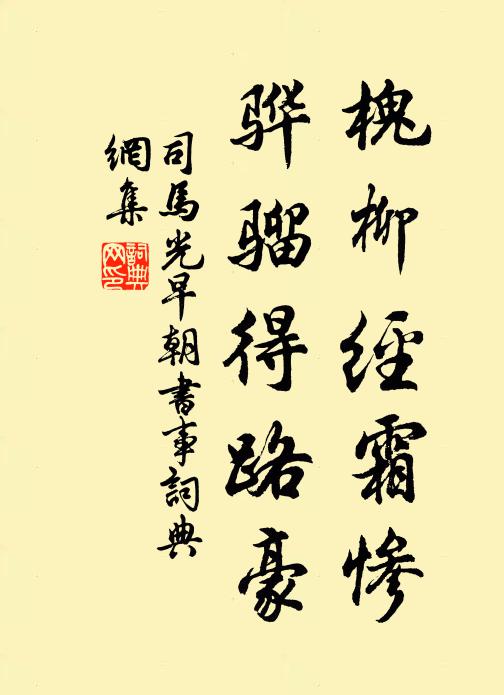 槐柳經霜惨
骅骝得路豪
司馬光早朝書事詞典
網集
詞典
网印